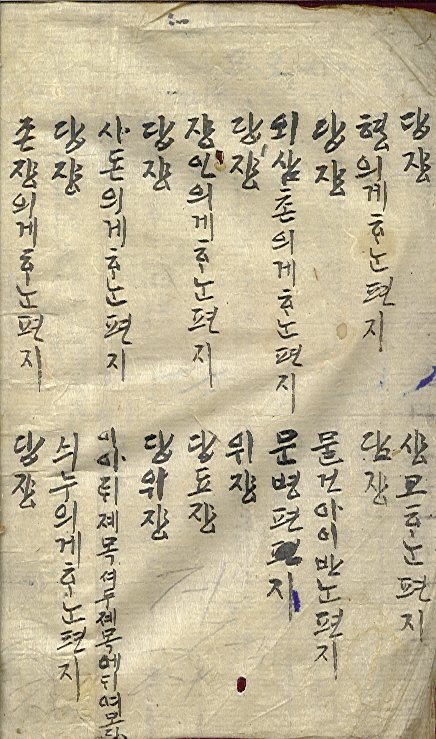 답쟝
형의게ᄒᆞᄂᆞᆫ편지
답쟝
외삼촌의게ᄒᆞᄂᆞᆫ편지
답쟝
쟝인의게ᄒᆞᄂᆞᆫ편지
답쟝
사돈의게ᄒᆞᄂᆞᆫ편지
답쟝
존쟝의게ᄒᆞᄂᆞᆫ편지
샹고ᄒᆞᄂᆞᆫ편지
답쟝
물건아이반ᄂᆞᆫ편지
문병편지
위쟝
답됴쟝
답위쟝
제목셔두제목에
싀누의게ᄒᆞᄂᆞᆫ편지
답쟝